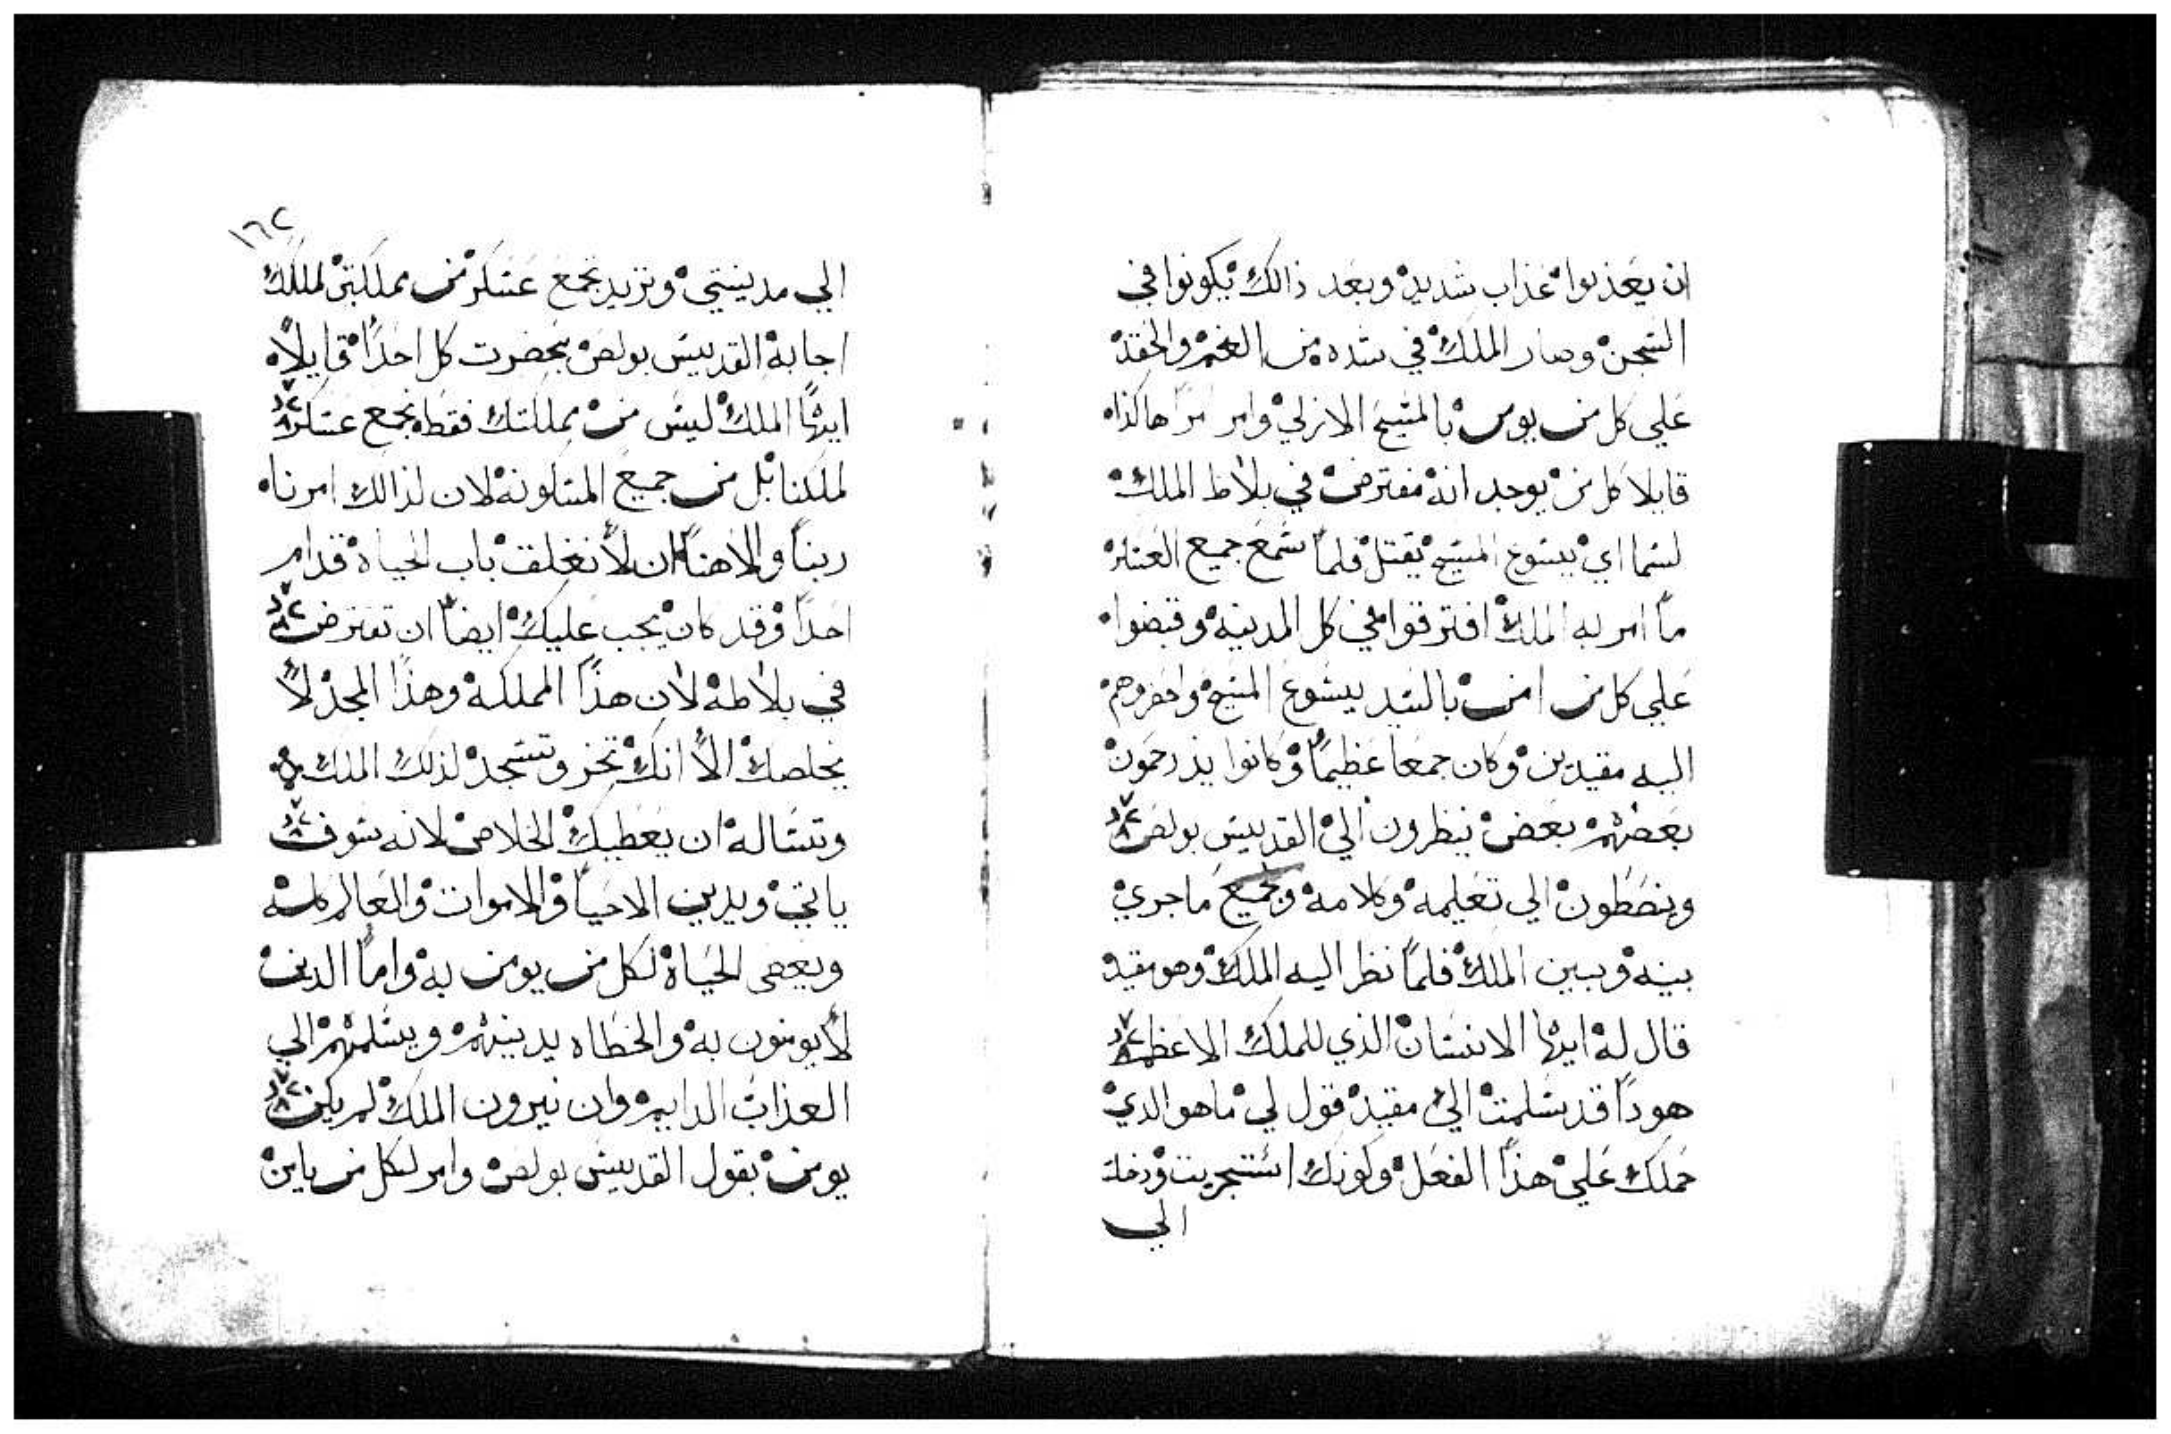 ان يعذبوا عذاب شديد وبعد ذالك يكونوا في
السجن وصار الملك في شده من الغم والحقد
علي كل من يومن بالمسيح الازلي وامر امراً هاكذا
قايلا كل من يوجد انه مفترض في بلاط الملك
لسما اي يسوع المسيح يقتل فلما سمع جميع العسكر
ما امر به الملك افترقوا في كل المدينه وقبضوا
علي كل من امن بالسيد يسوع المسيح واحضروهم
اليه مقيدين وكان جمعا عظيماً وكانوا يزدحمون
بعضهم بعض ينظرون الي القديس بولص
وينصطون الي تعليمه وكلامه وجميع ما جري
بينه وبين الملك فلما نظر اليه الملك وهو مقيد
قال له ايها الانسان الذي للملك الاعظم
هوداً قد سلمت الي مقيد قول لي ما هو الدي
حملك علي هذا الفعل وكونك استجريت ودخلت
الي
١٦٢
الي مدينتي وتريد تجمع عسكر من مملكتي لملكك
اجابه القديس بولص بحضرت كل احداً قايلاً
ايها الملك ليس من مملكتك فقط نجمع عسكر
لملكنا بل من جميع المسكونه لان لذالك امرنا
ربنا والاهنا ان لا نغلق باب الحياه قدام
احداً وقد كان يجب عليك ايضاً ان تفترض
في بلاطه لان هذا المملكه وهذا المجد لا
يخلصك الا انك تخر وتسجد لذلك الملك
وتساله ان يعطيك الخلاص لانه سوف
ياتي ويدين الاحيا والاموات والعالم كله
ويعطي الحياه لكل من يومن به واما الدين
لا يومنون به والخطاه يدينهم ويسلمهم الي
العذاب الدايم وان نيرون الملك لم يكن
يومن بقول القديس بولص وامر لكل من ياين